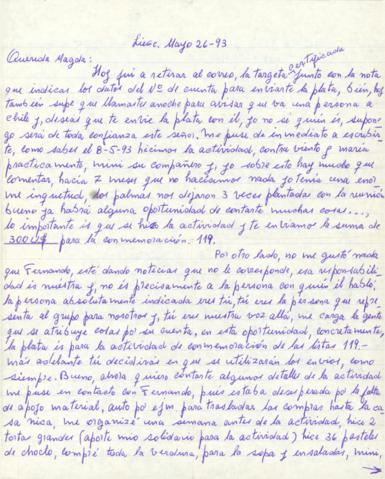 Liège. Mayo 26-93
Querida Magda:
certificada
Hoy fui a retirar al correo, la targeta junto con la nota
que indicas los datos del Nº de cuenta para enviarte la plata, bien, hoy
también supe que llamaste anoche para avisar que va una persona a
chile y, deseas que te envíe la plata con él, yo no se quien es, supon-
go será de toda confianza este señor. Me puse de inmediato a escribir-
te, como sabes el 8-5-93 hicimos la actividad, contra viento y marea
practicamente, mimi su compañero y, yo sobre esto hay mucho que
comentar, hacía 7 meses que no hacíamos nada yo tenía una enor-
me inquietud, las palmas nos dejaron 3 veces plantadas con la reunión
bueno ya habrá alguna oportunidad de contarte muchas cosas...,
lo importante es que se hizo la actividad y te enviamos la suma de
300 U$ para la conmemoración. 119.
Por otro lado, no me gustó nada
que Fernando, esté dando noticias que no le corresponde, esa responsabili-
dad es nuestra y, no es precisamente a la persona con quien él habló;
la persona absolutamente indicada eres tú, tú eres la persona que repre-
senta al grupo para nosotros y, tú eres nuestra voz allá, me carga la gente
que se atribuye cosas por su cuenta, en esta oportunidad, concretamente,
la plata es para la actividad de conmemoración de las listas 119.-
más adelante tú decidirás en que se utilizarán los envíos, como
siempre. Bueno, ahora quiero contarte algunos detalles de la actividad
me puse en contacto con Fernando, pués estaba desesperada por la falta
de apoyo material, auto por ejm. para trasladar las compras hasta la ca-
sa nica, me organizé una semana antes de la actividad, hice 2
tortas grandes (aporte mio solidario para la actividad) hice 36 pasteles
de choclo, compré toda la verdura, para la sopa y ensaladas, mimi,
→